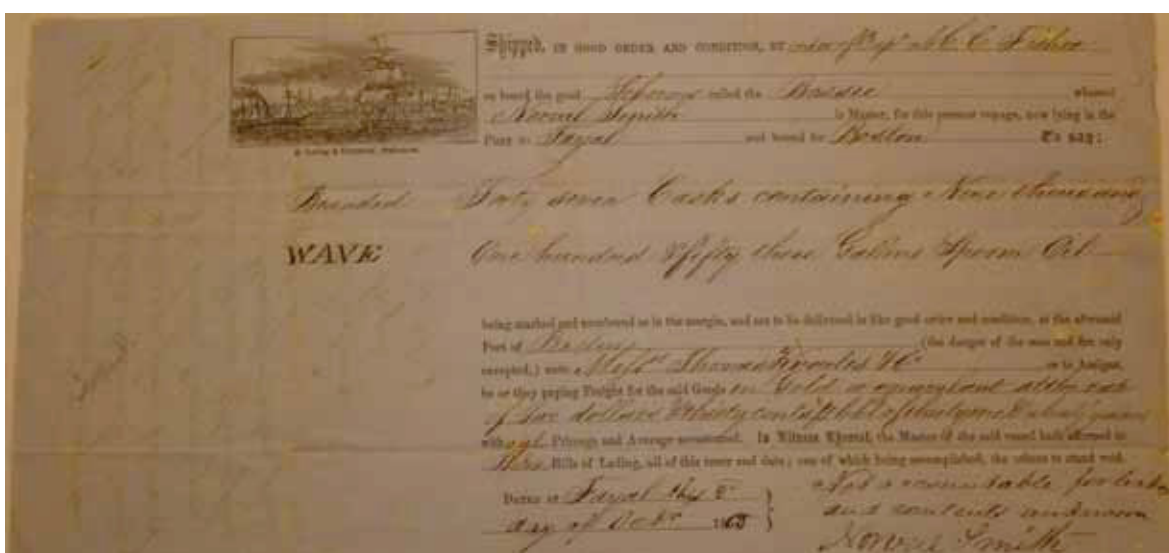 Shipped, IN GOOD ORDER AND CONDITION, BY
on board the good called the Bessie whereof
Norvel Smith is Master, for this present voyage, now lying in the
Port of Fayal and bound for Boston To say:
Branded Forty seven Casks containing Nine thousand
WAVE One hundred & fifty three Gallons Sperm Oil
being marked and numbered as in the margin, and are to be delivered in like good order and condition, at the aforesaid
Port of Boston (the danger of the seas and fire only
excepted,) unto Messrs Thomas & Co or to Assigns,
he or they paying Freight for the said Goods in Gold or equivalent at the rate
of two dollars & thirty cents
with Primage and Average accustomed. In Witness Whereof, the Master of the said vessel hath affirmed to
Three Bills of Lading, all of this tenor and date; one of which being accomplished, the others to stand void.
DATED at Fayal this 5
day of Octr
Not accountable for leakage
and contents unknown
Norvel Smith